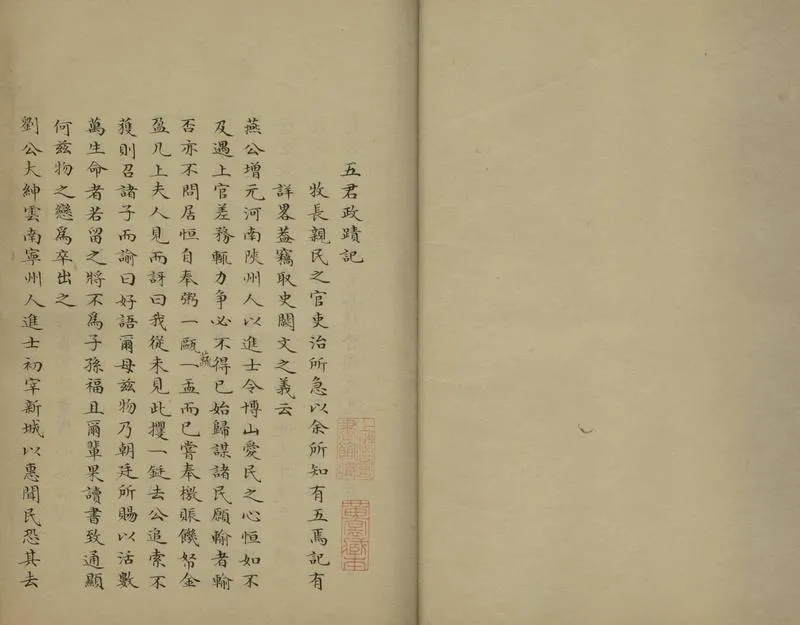 五君政蹟記
牧長親民之官吏治所急以余所知有五焉記有
詳畧蓋竊取史闕文之義云
燕公增元河南陜州人以進士令博山愛民之心恒如不
及遇上官差務輒力争必不得已始歸謀諸民願輸者輸
否亦不問居恒自奉粥一甌蔬一盂而已嘗奉檄賑饑帑金
盈几上夫人見而訝曰我從未見此攫一鋌去公追索不
獲則召諸子而諭曰好語爾母兹物乃朝廷所賜以活數
萬生命者若留之將不為子孫福且爾輩果讀書致通顯
何兹物之戀為卒出之
劉公大紳雲南寧州人進士初宰新城以惠聞民恐其去